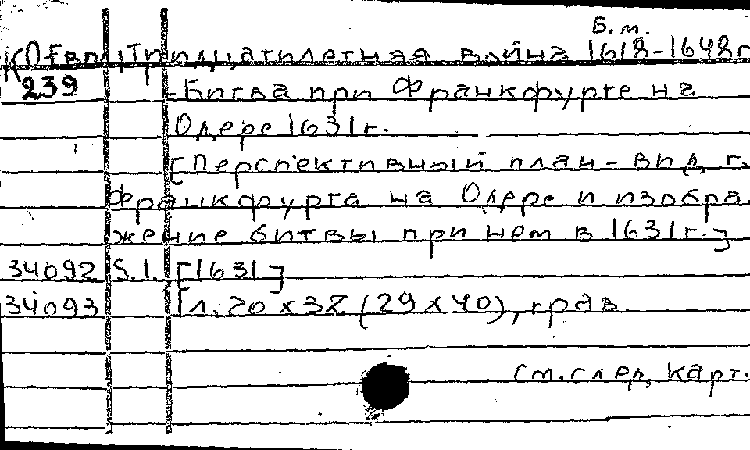 Б.м.
К П Евр. Тридцатилетняя война 1618-1648 г
239 -Битва при Франкфурте на
Одере 1631 г.
[Перспективный план-вид г.
Франкфурта на Одере и изобра
жение битвы при нем в 1631 г.]
34092 S.l. [1631]
34093 1 л. 20 x 32 (29 x 40), грав
См. след. карт.